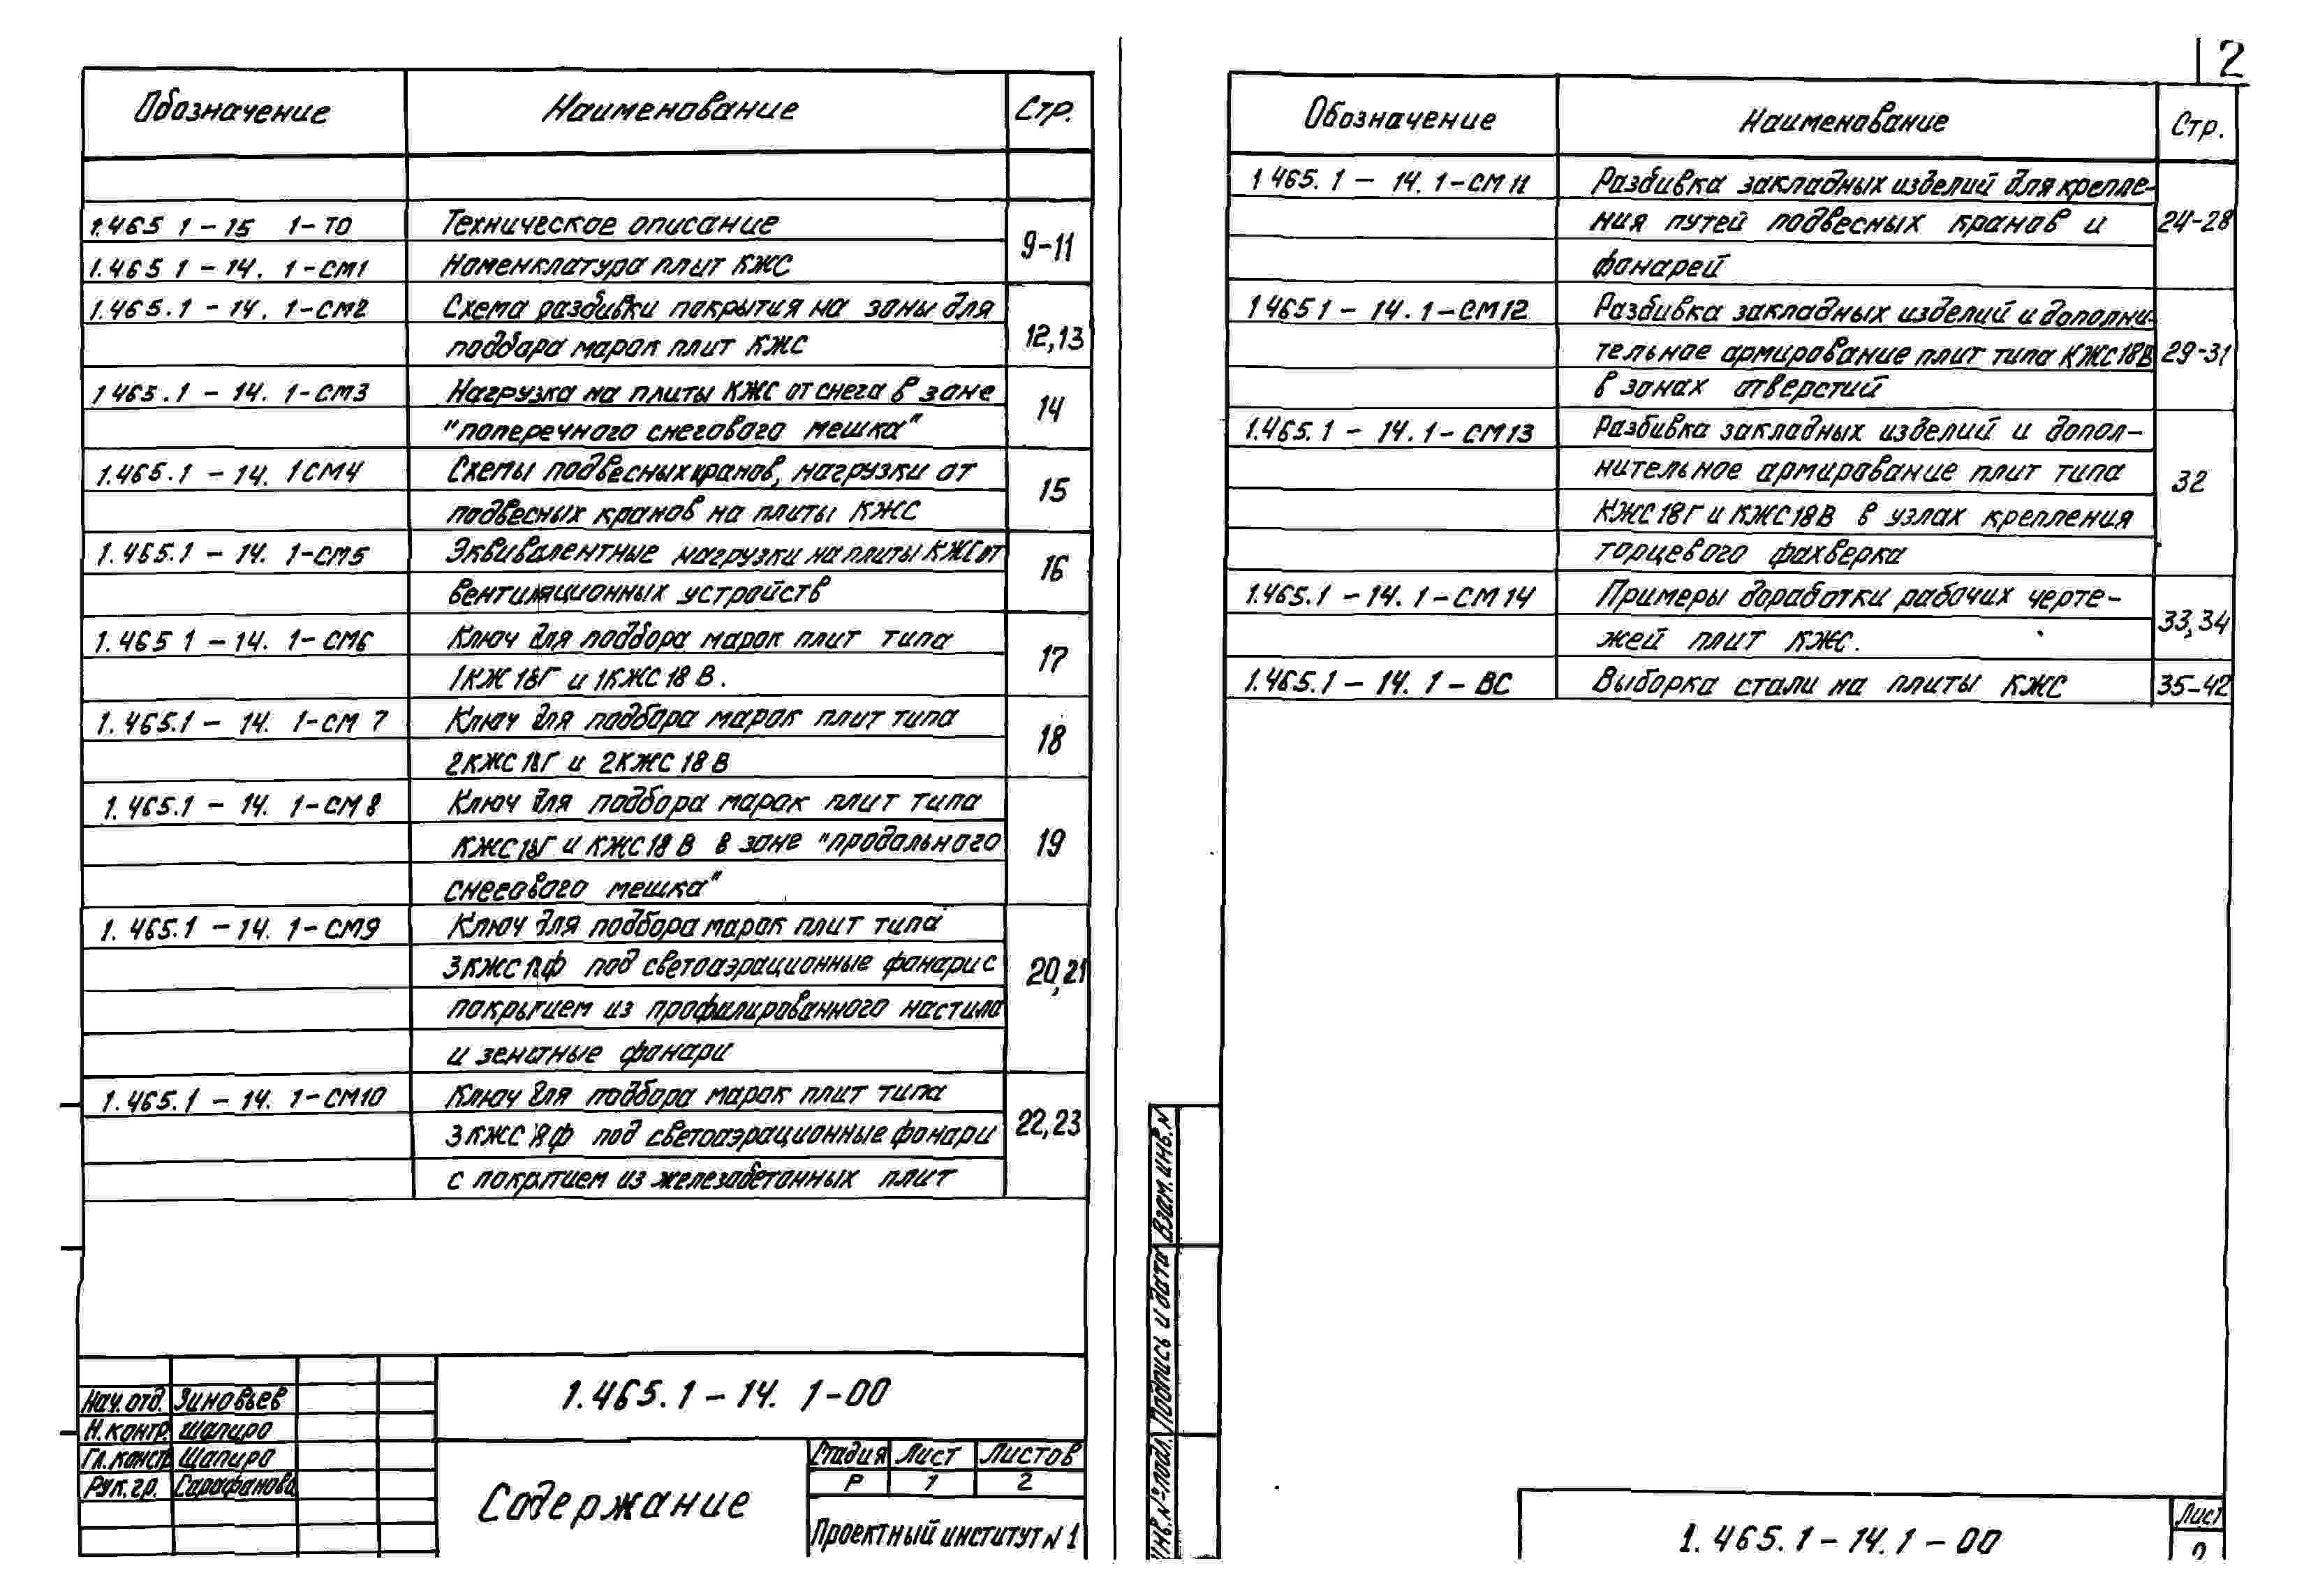 2
Обозначение Наименование Стр.
1.465 1-15 1-ТО Техническое описание
9-11
1.465 1-14. 1-СМ1 Номенклатура плит КЖС
1.465.1-14. 1-СМ2 Схема разбивки покрытия на зоны для
подбора марок плит КЖС 12,13
1 465.1-14. 1-СМ3 Нагрузка на плиты КЖС от снега в зоне
"поперечного снегового мешка" 14
1.465.1-14. 1СМ4 Схемы подвесных кранов, нагрузки от
подвесных кранов на плиты КЖС 15
1.465.1-14. 1-СМ5 Эквивалентные нагрузки на плиты КЖС от
вентиляционных устройств 16
1.465 1-14. 1-СМ6 Ключ для подбора марок плит типа
1КЖ18Г и 1КЖС18В. 17
1.465.1-14. 1-СМ 7 Ключ для подбора марок плит типа
2КЖС18Г и 2КЖС18В 18
1.465.1-14. 1-СМ8 Ключ для подбора марок плит типа
КЖС18Г и КЖС18В в зоне "продольного 19
снегового мешка"
1.465.1-14. 1-СМ9 Ключ для подбора марок плит типа
под светоаэрационные фонари с 20,21
покрытием из профилированного настила
и зенитные фонари
1.465.1-14. 1-СМ10 Ключ для подбора марок плит типа
под светоаэрационные фонари 22,23
с покрытием из железобетонных плит
Нач.отд. Зиновьев
Н.контр. Шапиро
Гл.констр. Шапиро
Рук.гр. Сарафанова
1.465.1-14. 1-00
Содержание
Стадия Лист Листов
Р 1 2
Проектный институт N1
Обозначение Наименование Стр.
1 465.1-14.1-СМ11 Разбивка закладных изделий для крепле-
ния путей подвесных кранов и 24-28
фонарей
1 465 1-14.1-СМ12 Разбивка закладных изделий и дополни-
тельное армирование плит типа КЖС18В 29-31
в зонах отверстий
1.465.1-14.1-СМ13 Разбивка закладных изделий и допол-
нительное армирование плит типа 32
КЖС18Г и КЖС18В в узлах крепления
торцевого фахверка
1.465.1-14.1-СМ14 Примеры доработки рабочих черте-
жей плит КЖС. 33,34
1.465.1-14. 1-ВС Выборка стали на плиты КЖС 35-42
Взам.инв.N
Подпись и дата
Инв.№подл.
1.465.1-14.1-00
Лист
2